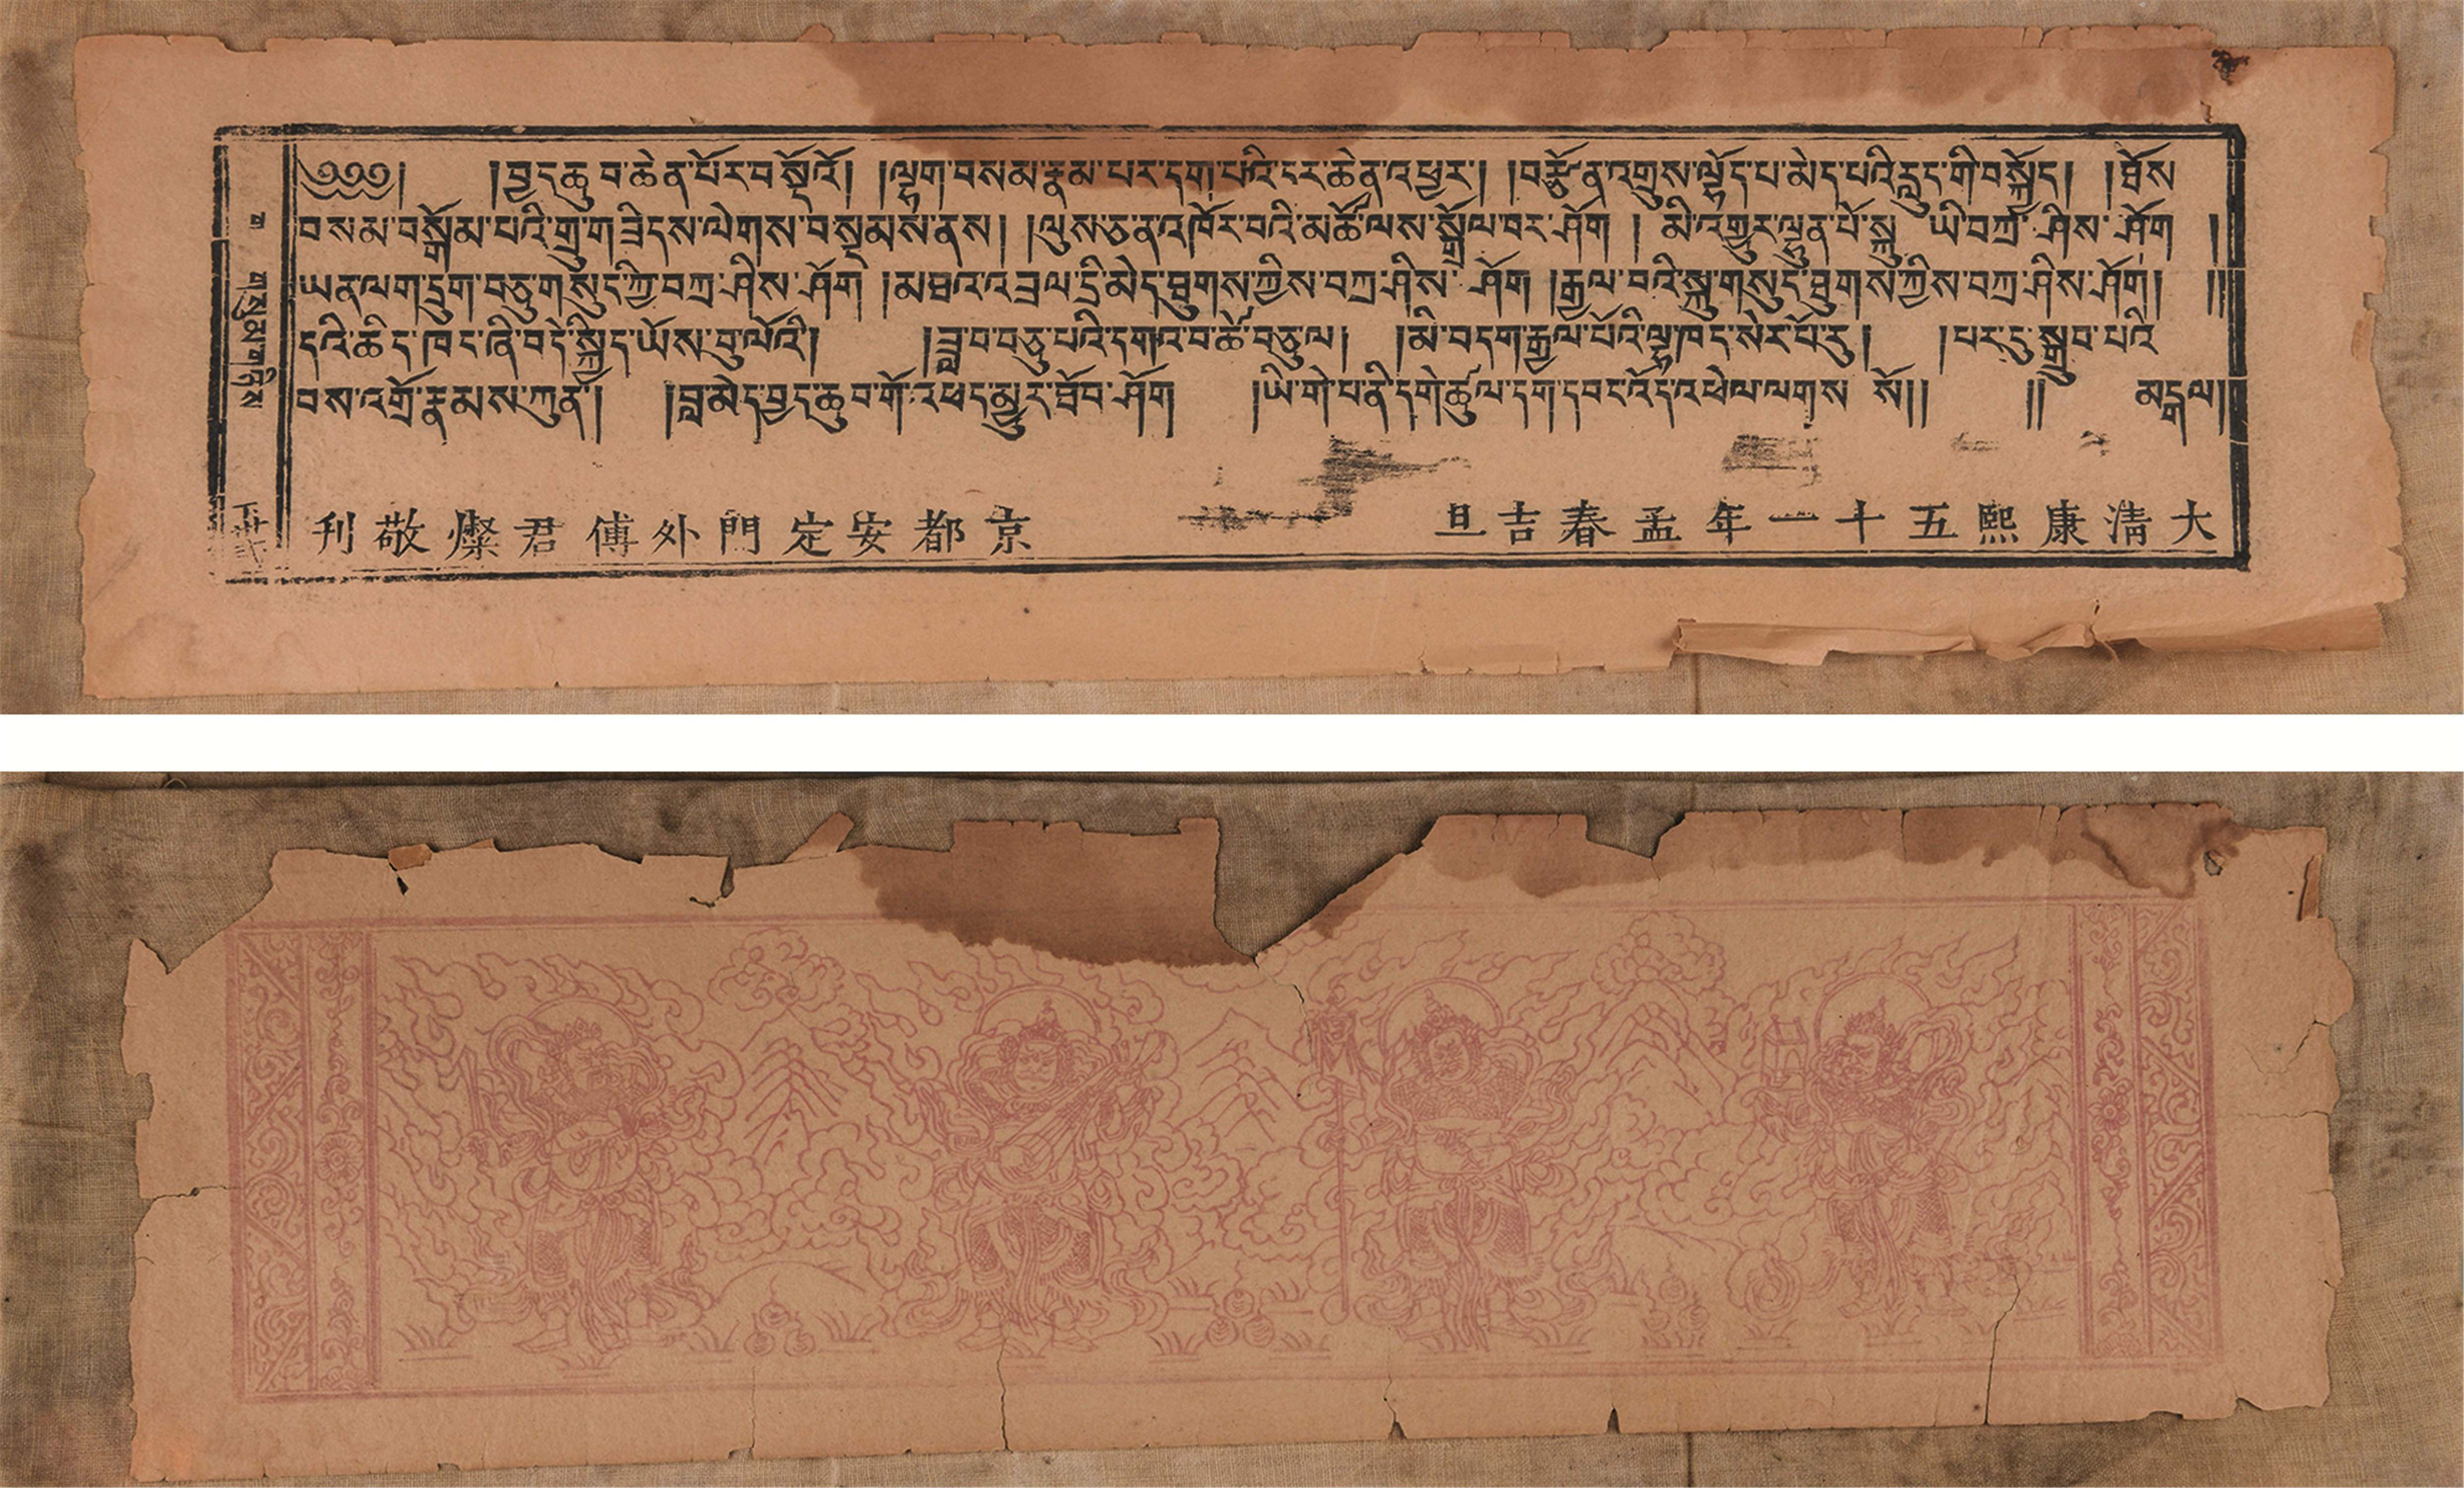 ༄༅༅། །བྱང་ཆུབ་ཆེན་པོར་བསྔོའོ། །ལྷག་བསམ་རྣམ་པར་དག་པའི་དར་ཆེན་འཕྱར། །བརྩོན་འགྲུས་ལྷོད་པ་མེད་པའི་རླུང་གི་བསྐྱོད། །ཐོས
བསམ་བསྒོམ་པའི་གྲུ་གཟིངས་ལེགས་བསྡམས་ནས། །ལུས་ཅན་འཁོར་བའི་མཚོ་ལས་སྒྲོལ་བར་ཤོག །མི་འགྱུར་ལྷུན་པོ་སྐུ་ཡི་བཀྲ་ཤིས་ཤོག །
ཡན་ལག་དྲུག་བཅུ་གསུང་ཀྱི་བཀྲ་ཤིས་ཤོག །མཐའ་འབྲལ་དྲི་མེད་ཐུགས་ཀྱིས་བཀྲ་ཤིས་ཤོག །རྒྱལ་བའི་སྐུ་གསུང་ཐུགས་ཀྱིས་བཀྲ་ཤིས་ཤོག། །།
དའི་ཆིང་ཁང་ཞི་བདེ་སྐྱིད་ཡོས་བུ་ལོའི། །ཟླ་བ་བཅུ་པའི་དགའ་བ་ཚེ་བཅུ་ལ། །མི་བདག་རྒྱལ་པོའི་ལྷ་ཁང་སེར་པོ་རུ། །པར་དུ་སྒྲུབ་པའི
བས་འགྲོ་རྣམས་ཀུན། །བླ་མེད་བྱང་ཆུབ་གོ་འཕང་མྱུར་ཐོབ་ཤོག །ཡི་གེ་པ་ནི་དགེ་ཚུལ་དག་དབང་འོད་འཕེལ་ལགས་སོ།། །། མངྒལ།
大清康熙五十一年孟春吉旦 京都安定門外傅君燦敬刊